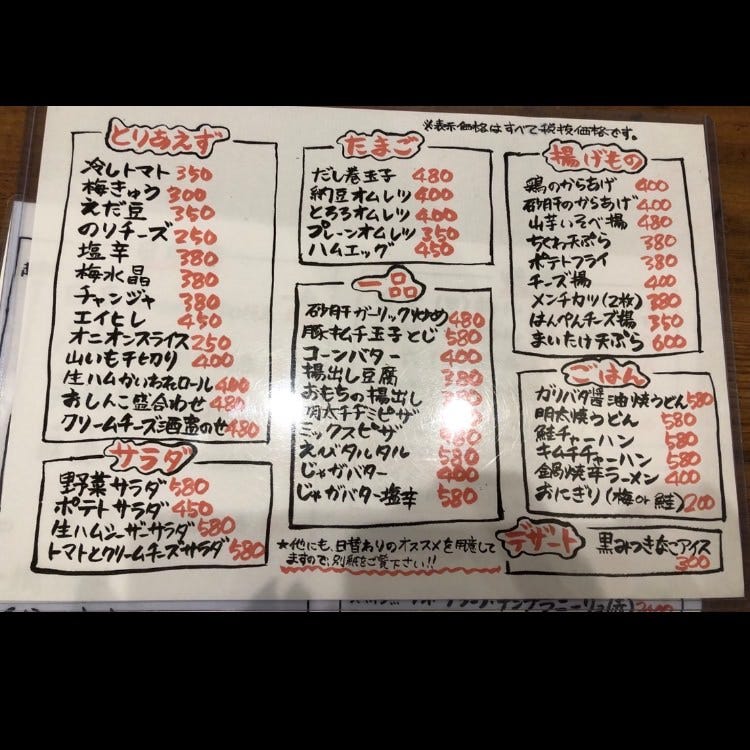 ※表示価格はすべて税抜価格です。
とりあえず
冷しトマト 350
梅きゅう 300
えだ豆 350
のりチーズ 250
塩辛 380
梅水晶 380
チャンジャ 380
エイヒレ 450
オニオンスライス 250
山いも千切り 400
生ハムかいわれロール 400
おしんこ盛合わせ 480
クリームチーズ酒盗のせ 480
サラダ
野菜サラダ 580
ポテトサラダ 450
生ハムシーザーサラダ 580
トマトとクリームチーズサラダ 580
たまご
だし巻玉子 480
納豆オムレツ 400
とろろオムレツ 400
プレーンオムレツ 350
ハムエッグ 450
一品
砂肝ガーリック炒め 480
豚キムチ玉子とじ 580
コーンバター 400
揚出し豆腐 380
おもちの揚出し 380
明太チヂミピザ
ミックスピザ
えびタルタル 580
じゃがバター 400
じゃがバター塩辛 580
★他にも、日替わりのオススメを用意して
ますので、別紙をご覧下さい!!
揚げもの
鶏のからあげ 400
砂肝のからあげ 400
山芋いそべ揚 480
ちくわ天ぷら 380
ポテトフライ 380
チーズ揚 400
メンチカツ(2枚) 380
はんぺんチーズ揚 350
まいたけ天ぷら 600
ごはん
ガリバタ醤油焼うどん 580
明太焼うどん 580
鮭チャーハン 580
キムチチャーハン 580
鍋焼辛ラーメン 400
おにぎり(梅or鮭) 200
デザート
黒みつきなこアイス
300